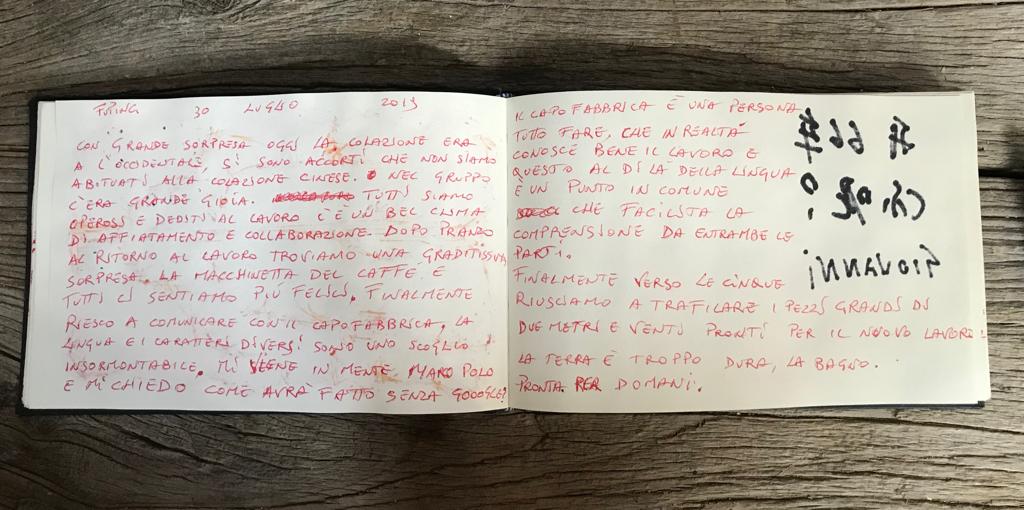 FUPING 30 LUGLIO 2019
CON GRANDE SORPRESA OGGI LA COLAZIONE ERA
A L'OCCIDENTALE, SI SONO ACCORTI CHE NON SIAMO
ABITUATI ALLA COLAZIONE CINESE. NEL GRUPPO
C'ERA GRANDE GIOIA. TUTTI SIAMO
OPEROSI E DEDITI AL LAVORO C'È UN BEL CLIMA
DI AFFIATAMENTO E COLLABORAZIONE. DOPO PRANZO
AL RITORNO AL LAVORO TROVIAMO UNA GRADITISSIMA
SORPRESA. LA MACCHINETTA DEL CAFFÈ E
TUTTI CI SENTIAMO PIÙ FELICI. FINALMENTE
RIESCO A COMUNICARE CON IL CAPOFABBRICA. LA
LINGUA E I CARATTERI DIVERSI SONO UNO SCOGLIO
INSORMONTABILE. MI VIENE IN MENTE MARCO POLO
E MI CHIEDO COME AVRÀ FATTO SENZA GOOGLE?
IL CAPO FABBRICA È UNA PERSONA
TUTTO FARE, CHE IN REALTÀ
CONOSCE BENE IL LAVORO E
QUESTO AL DI LÀ DELLA LINGUA
È UN PUNTO IN COMUNE
CHE FACILITA LA
COMPRENSIONE DA ENTRAMBE LE
PARTI.
FINALMENTE VERSO LE CINQUE
RIUSCIAMO A TRAFILARE I PEZZI GRANDI DI
DUE METRI E VENTI PRONTI PER IL NUOVO LAVORO:
LA TERRA È TROPPO DURA, LA BAGNO.
PRONTA PER DOMANI.
GIOVANNI